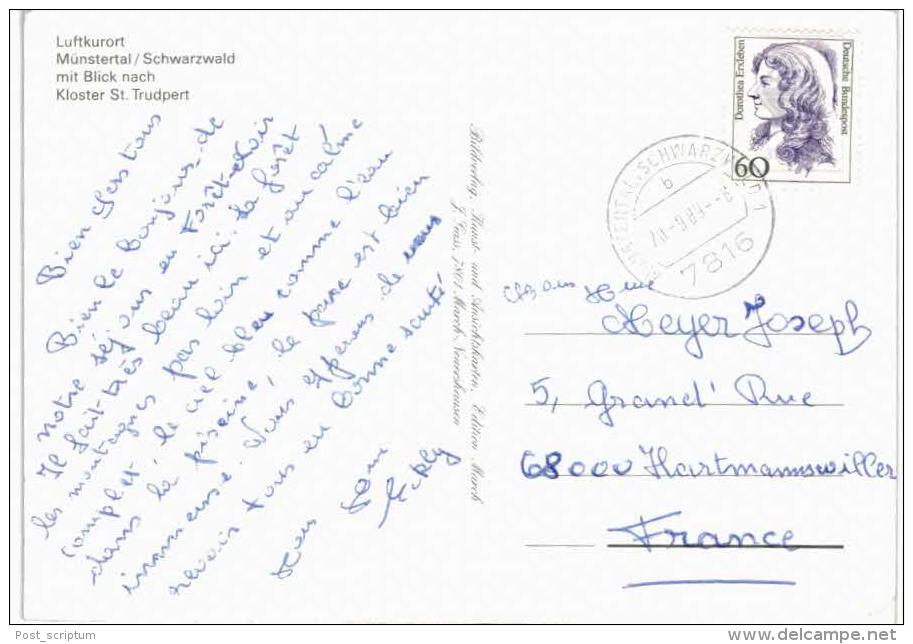 Luftkurort
Münstertal/Schwarzwald
mit Blick nach
Kloster St. Trudpert
Bien chers tous
Bien le bonjour de
notre séjour en Forêt-Noir
Il fait très beau ici. la forêt
les montagnes pas loin et au calme
complet, le ciel bleu comme l'eau
dans la piscine, le parc est bien
immense. Nous espérons de vous
revoir tous en bonne santé
Bildverlag, Kunst- und Ansichtskarten, Edition March
J. Gass, 7801 March-Neuershausen
Dorothea Erxleben
Deutsche Bundespost
60
MÜNSTERTAL, SCHWARZWALD 1
b
7816
Meyer Joseph
5, Grand' Rue
68000 Hartmannswiller
France
Post_scriptum
www.delcampe.net